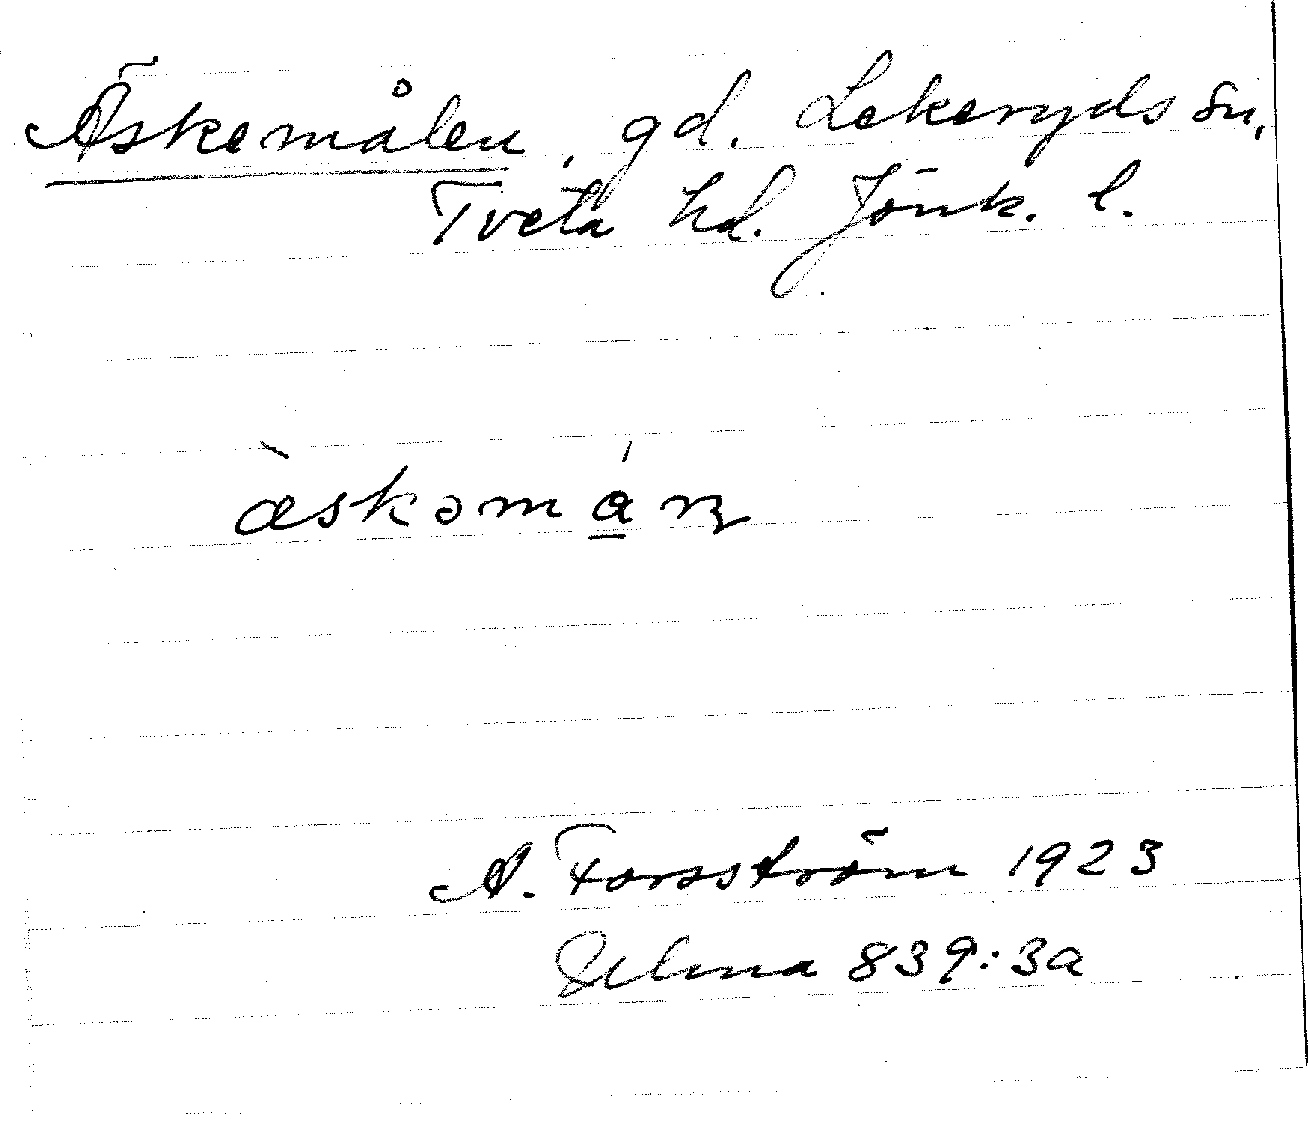 Äskemålen, gd. Lekeryds sn,
Tveta hd. Jönk. l.
æ̀skəmá̱n
A. Forsström 1923
839:3a